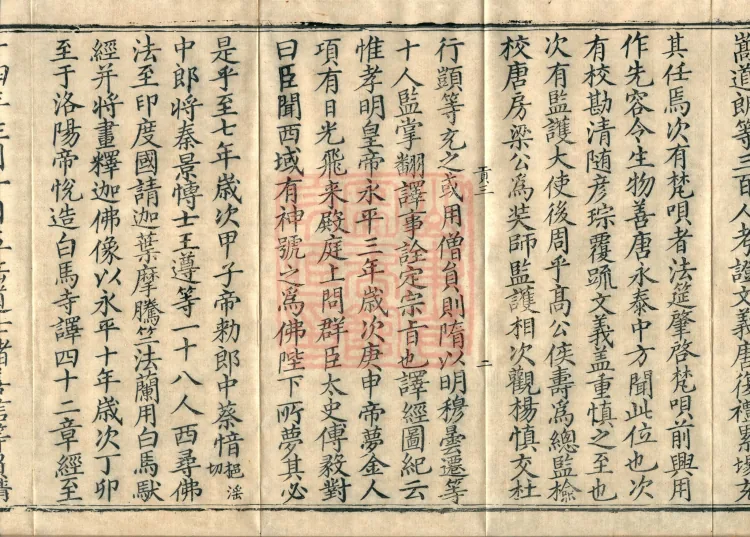 嵩道郎等三百人考證文義唐復禮累場充
其任焉次有梵唄者法筵肇啓梵唄前興用
作先容令生物善唐永泰中方聞此位也次
有校勘清隨彦琮覆䟽文義盖重慎之至也
次有監護大使後周平髙公侯壽爲總監撿
校唐房梁公爲奘師監護相次觀楊慎交杜
行顗等充之或用僧員則隋以明穆曇遷等
貢三
二
十人監掌翻譯事詮定宗旨也譯經圖紀云
惟孝明皇帝永平三年歲次庚申帝夢金人
項有日光飛来殿庭上問群臣太史傅毅對
曰臣聞西域有神號之爲佛陛下所夢其必
是乎至七年歲次甲子帝勑郎中蔡愔挹淫切
中郎將秦景博士王遵等一十八人西尋佛
法至印度國請迦葉摩騰竺法蘭用白馬馱
經并將畫釋迦佛像以永平十年歲次丁卯
至于洛陽帝悅造白馬寺譯四十二章經至